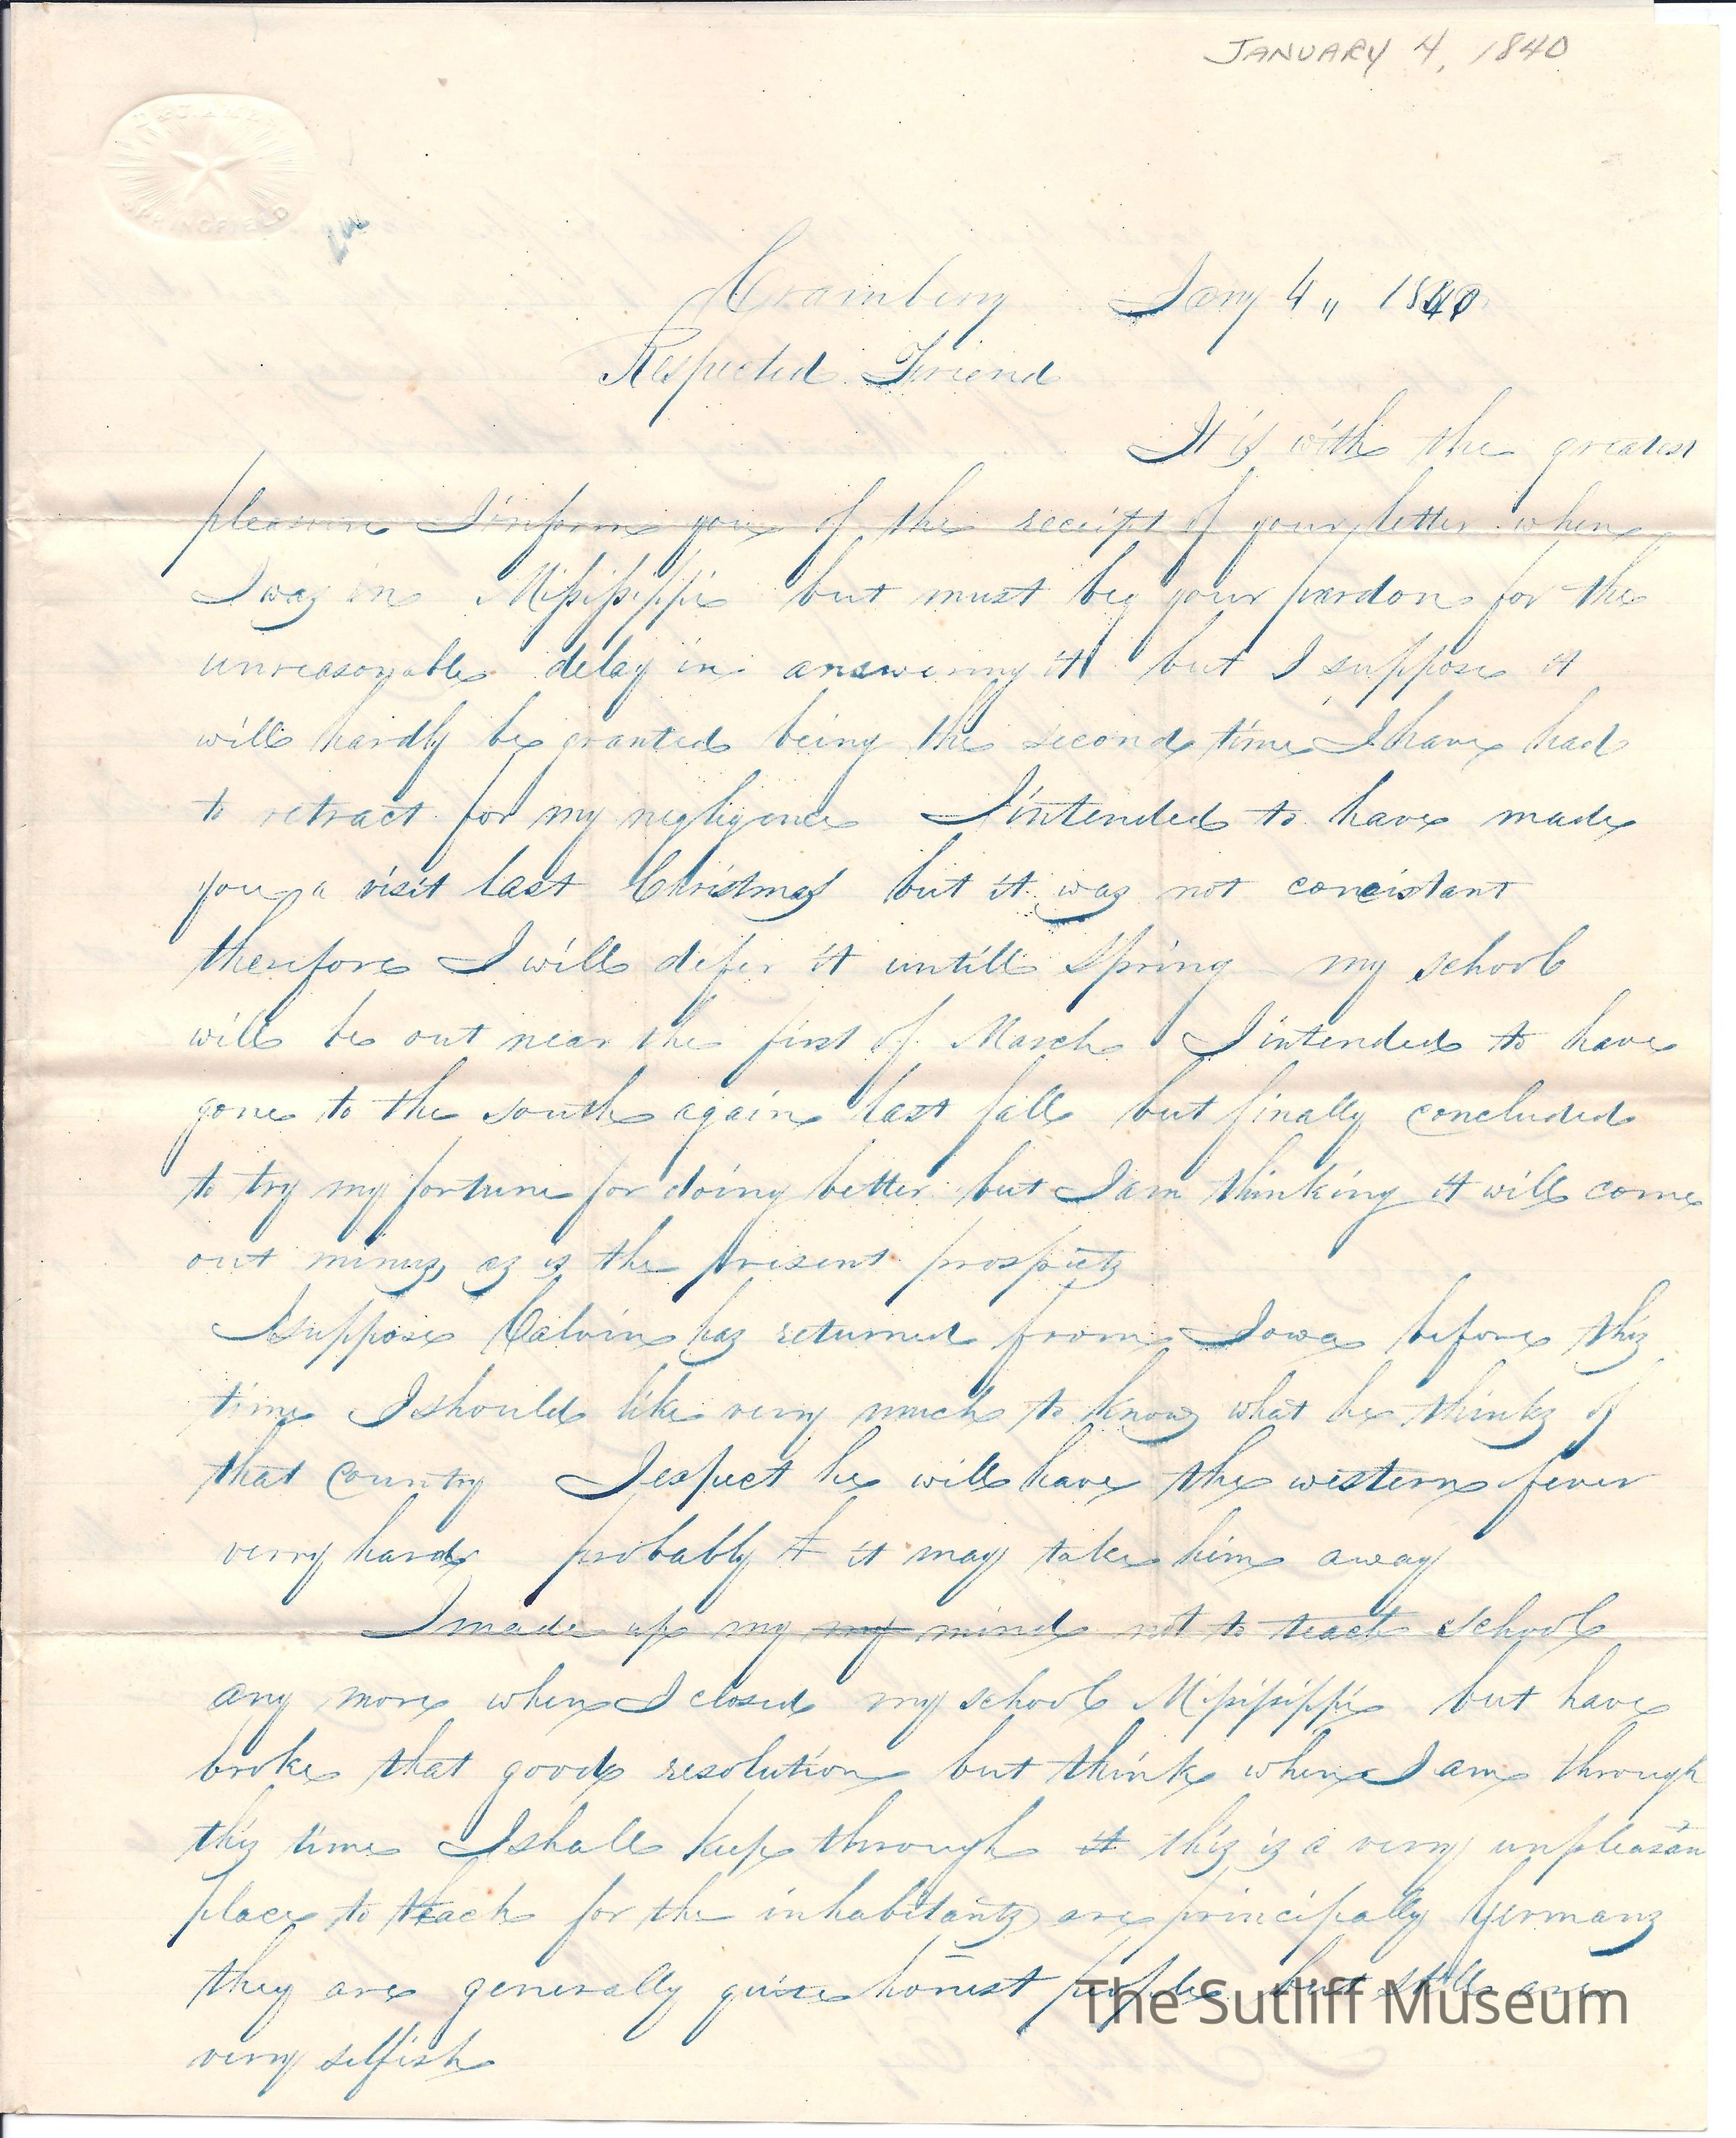 JANUARY 4, 1840
SPRINGFIELD
Jany 4 " 1840
Respected Friend
It is with the greatest
pleasure I inform you of the receipt of your letter when
I was in Missisippi but must beg your pardon for the
unreasonable delay in answering it but I suppose it
will hardly be granted being the second time I have had
to retract for my negligence I intended to have made
you a visit last Christmas but it was not concistant
therefore I will defer it untill Spring my school
will be out near the first of March I intended to have
gone to the south again last fall but finally concluded
to try my fortune for doing better but I am thinking it will come
out minus, as is the present prospects
I suppose Calvin has returned from Iowa before this
time I should like very much to know what he thinks of
that Country I espect he will have the western fever
verry hard probably & it may take him away
I made up my my mind not to teach school
any more when I closed my school Missisippi but have
broke that good resolution but think when I am through
this time I shall keep through it this is a verry unpleasan
place to teach for the inhabitants are principally Germans
they are generally quite honest people but still are
verry selfish
The Sutliff Museum